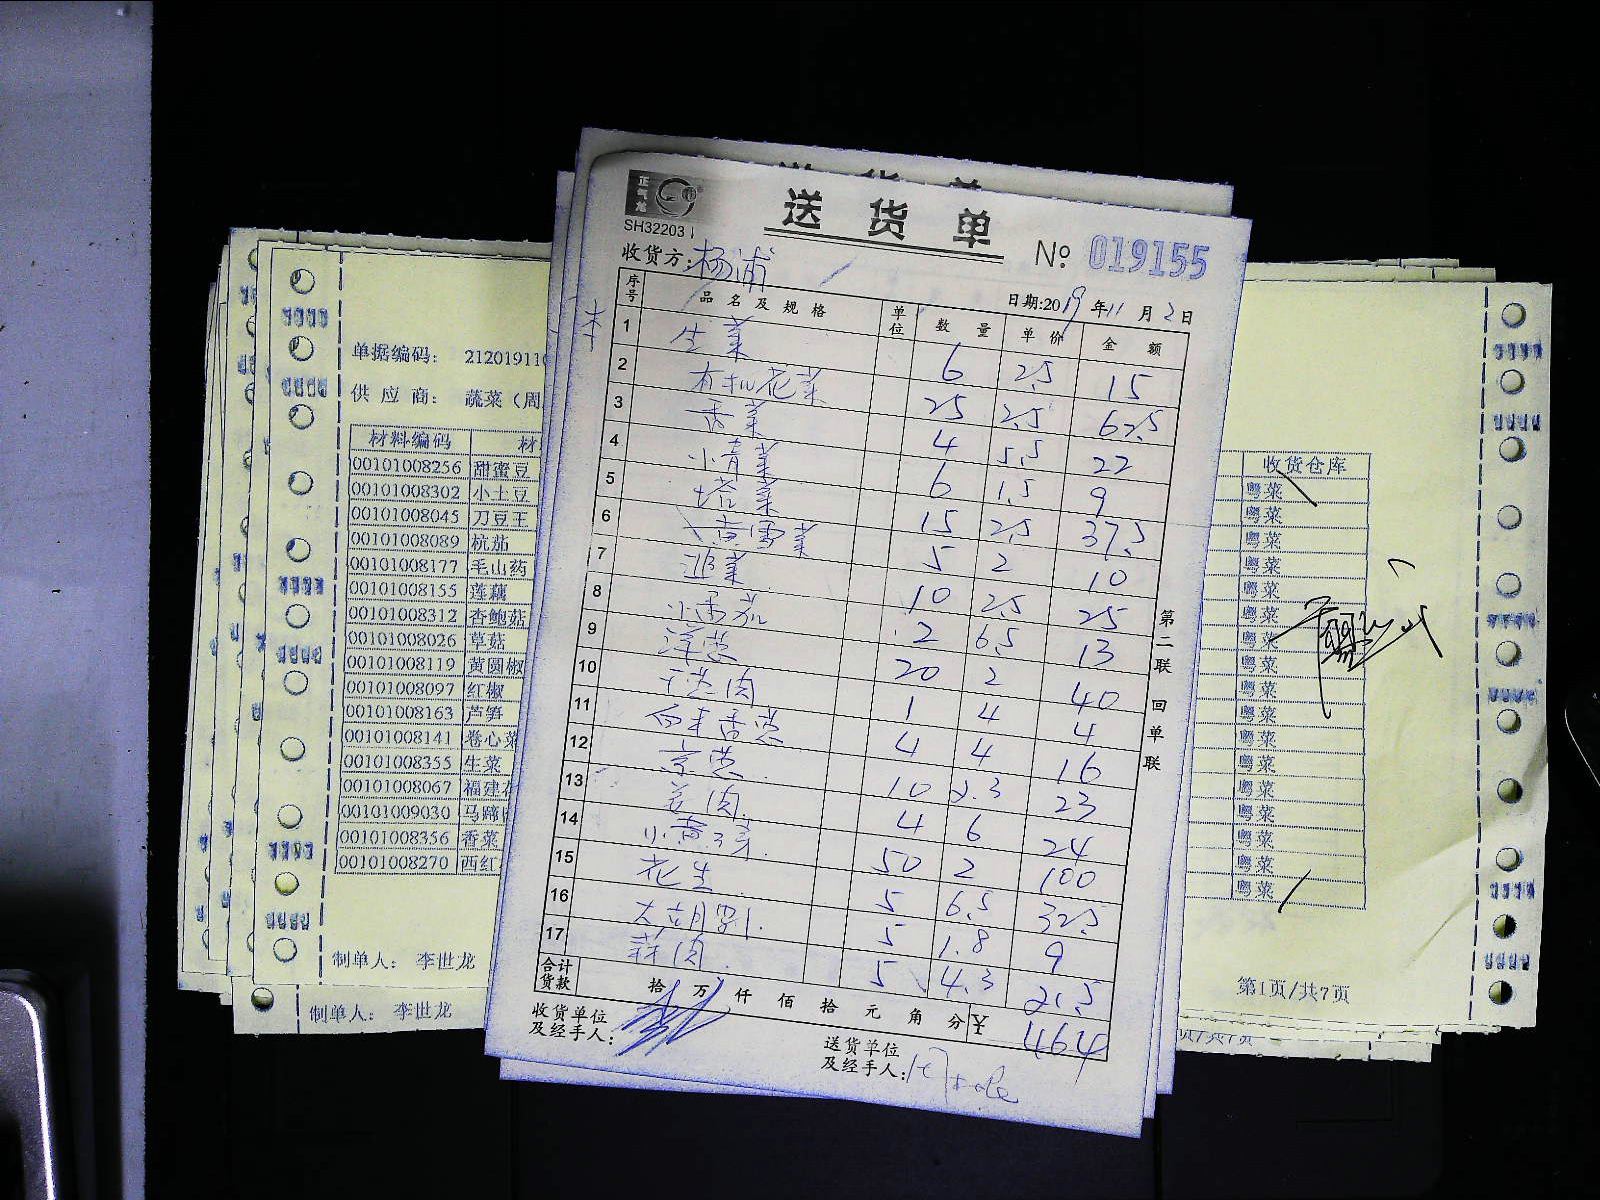 送货单
正气龙
SH32203
送货单
№ 019155
收货方: 杨浦
日期:2019年11月2日
序号 品名及规格 单位 数量 单价 金额
1 生菜 6 2.5 15
2 有机花菜 25 2.5 62.5
3 香菜 4 5.5 22
4 小青菜 6 1.5 9
5 塔菜 15 2.5 37.5
6 黄雪菜 5 2 10
7 10 2.5 25
8 小番茄 2 6.5 13
9 洋葱 20 2 40
10 干葱肉 1 4 4
11 4 4 16
12 京葱 10 2.3 23
13 姜肉 4 6 24
14 50 2 100
15 花生 5 6.5 32.5
16 5 1.8 9
17 蒜肉 5 4.3 21.5
合计货款 拾 万 仟 佰 拾 元 角 分 ¥ 464
收货单位及经手人:
送货单位及经手人:
第二联 回单联
单据编码: 212019110
供应商: 蔬菜（周
材料编码 材
00101008256 甜蜜豆
00101008302 小土豆
00101008045 刀豆王
00101008089 杭茄
00101008177 毛山药
00101008155 莲藕
00101008312 杏鲍菇
00101008026 草菇
00101008119 黄圆椒
00101008097 红椒
00101008163 芦笋
00101008141 卷心菜
00101008355 生菜
00101008067 福建
00101009030 马蹄
00101008356 香菜
00101008270 西红
制单人: 李世龙
制单人: 李世龙
收货仓库
粤菜
粤菜
粤菜
粤菜
粤菜
粤菜
粤菜
粤菜
粤菜
粤菜
粤菜
粤菜
粤菜
粤菜
粤菜
粤菜
粤菜
第1页/共7页
页/共7页